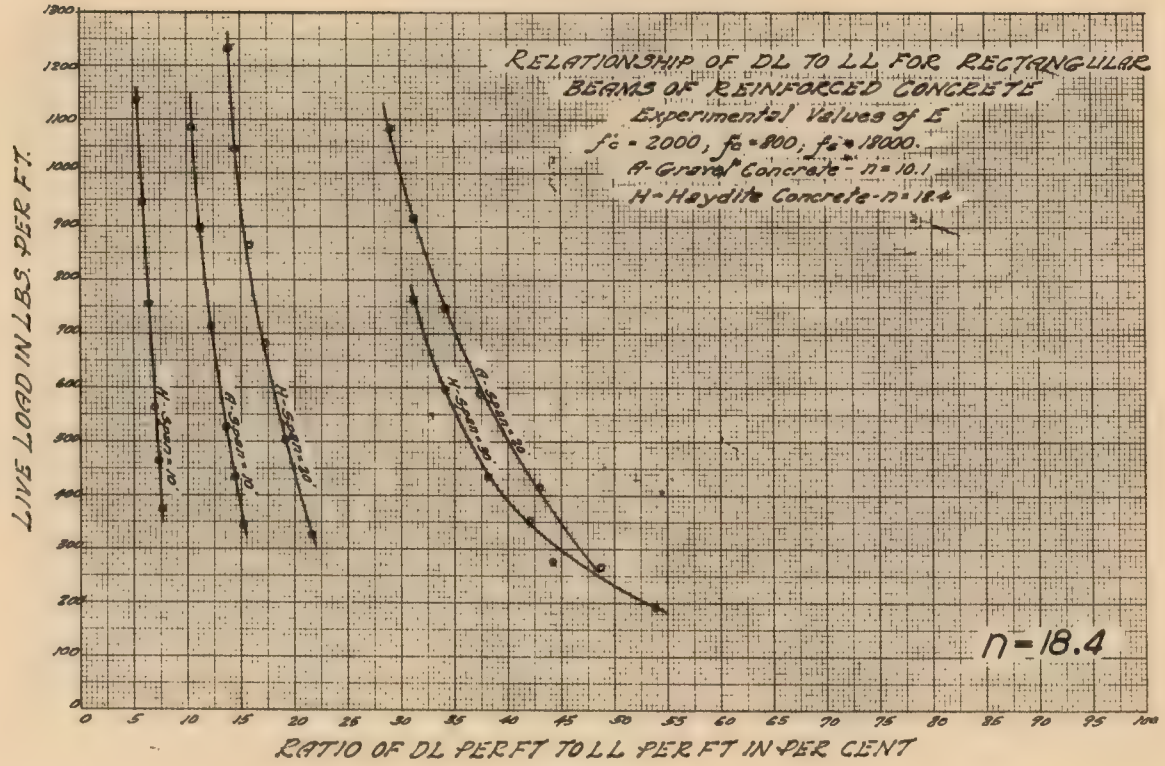 RELATIONSHIP OF DL TO LL FOR RECTANGULAR
BEAMS OF REINFORCED CONCRETE
Experimental Values of E
f'c = 2000, fc = 800; fs = 18000.
A-Gravel Concrete - n = 10.1
H-Haydite Concrete-n=18.4
LIVE LOAD IN LBS. PER FT.
1300
1200
1100
1000
900
800
700
600
500
400
300
200
100
0
H-Span=10'
A-Span=10'
H-Span=20'
H-Span=30'
A-Span=20
n=18.4
0 5 10 15 20 25 30 35 40 45 50 55 60 65 70 75 80 85 90 95 100
RATIO OF DL PER FT TO LL PER FT IN PER CENT